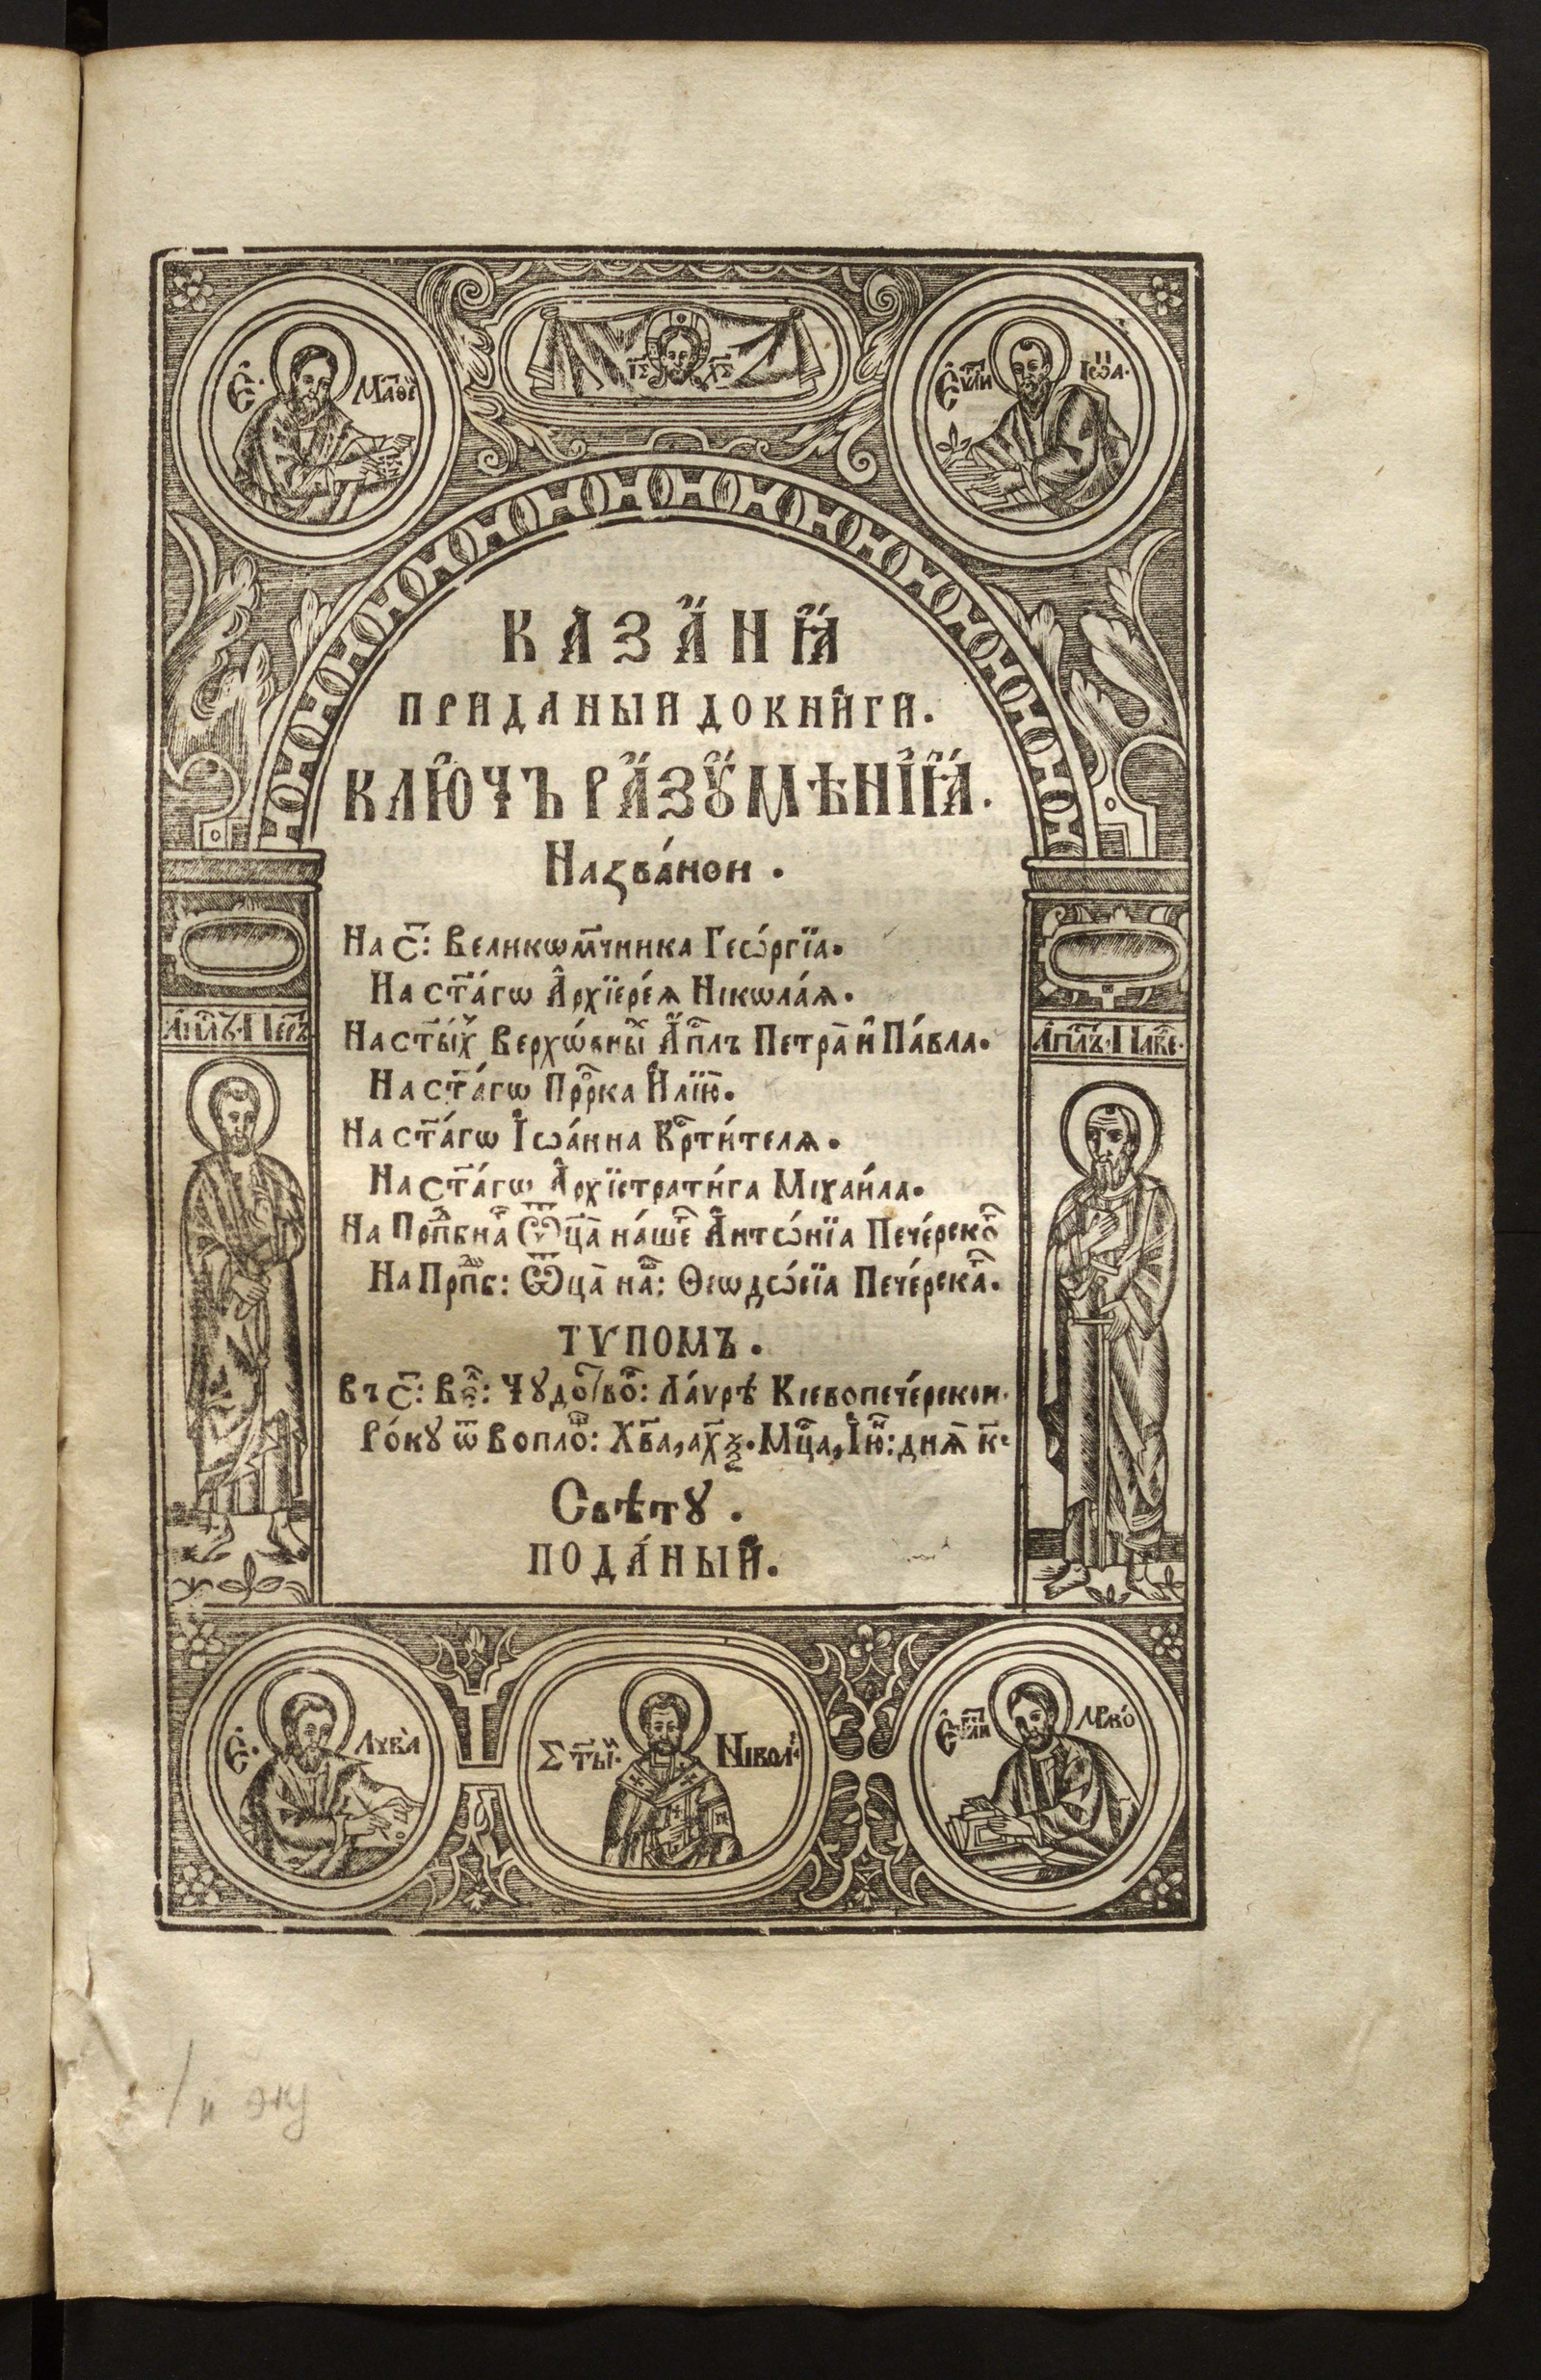 Є҃. Маѳе
І҃С Х҃С
Єѵ҃ли Іѡа.
КАЗА́НІѦ
ПРИДАНЫИ ДО КНИ́ГИ.
КЛЮ́ЧЪ РАЗꙊМѢ́НІѦ.
Наꙁва́нои.
На С҃: Великом҃чника Гео́ргїа.
На ст҃а́гѡ А҆рхїере́ѧ Нікѡла́ѧ.
На ст҃ы́х Верхѡ́вны А҆п҃лъ Петра҃ и҆ Па́вла.
На ст҃а́гѡ Прⷪ҇рка И҆лїю̀.
На ст҃а́гѡ І҆ѡа́нна Крⷭ҇ти́телѧ.
На ст҃а́гѡ А҆рхїстрати́га Міхаи́ла.
На Прпⷣбна Ѿца҃ на́шеⷢ҇ А҆нтѡ́нїа Пече́рскоⷢ҇
На Прпⷣб: Ѿца҃ наⷲ҇: Ѳеѡдѡ́сїа Пече́рскаⷢ҇.
ТѴПОМЪ.
Въ С҃: Веⷧ҇: Чꙋдоⷮвоⷬ҇: Ла́ѵрѣ Кіевопече́рскои.
Ро́кꙋ ѿ Воплоⷳ҇: Хв҃а, ах҃ѯ. Мцⷭ҇а, І҆ю҃н: днѧ҃ к҃.
Свѣтꙋ.
ПОДА́НЫЙ.
АП҃ЛЪ ПЕТРЪ
АП҃ЛЪ ПАВЕ.
Є҃. Лꙋка
Ст҃ы́й. Нікола
Єѵ҃ли Марко